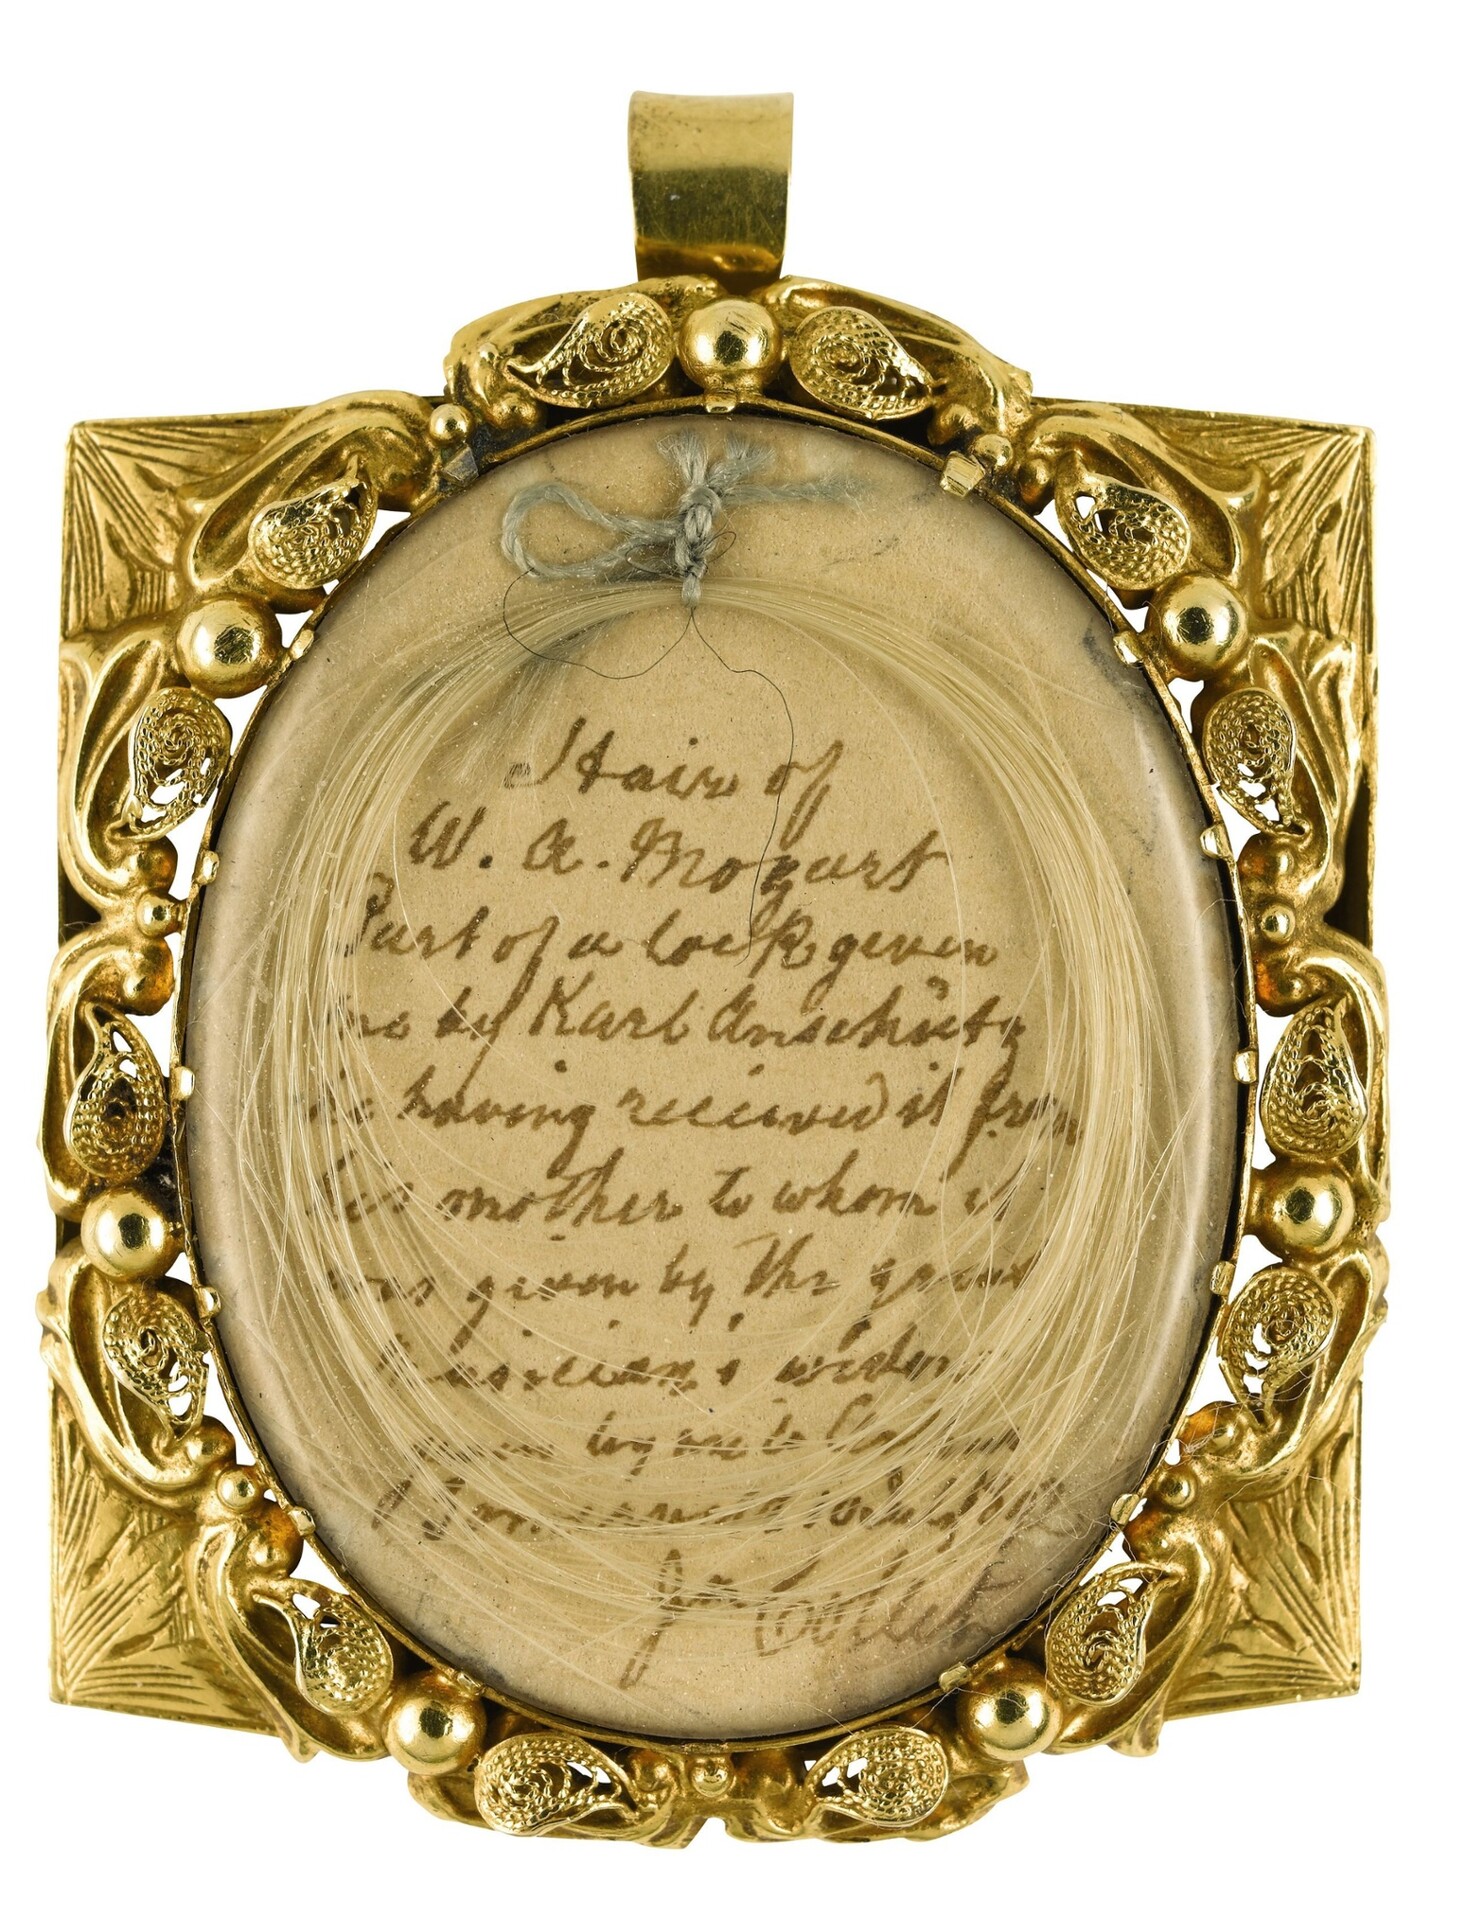 Hair of
W. A. Mozart
Part of a lock given
me by Karl Anschütz
he having received it from
his mother to whom it
was given by the great
Musician's widow
given by me to